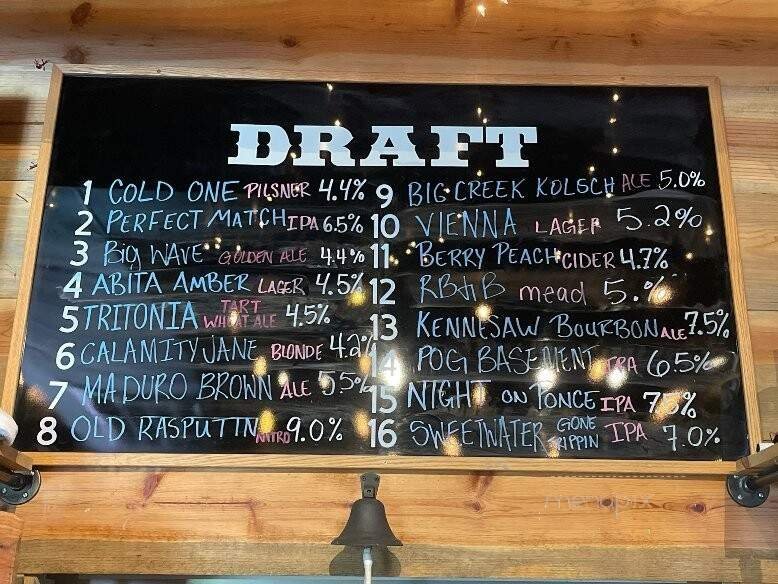 DRAFT
1 COLD ONE PILSNER 4.4%
2 PERFECT MATCH IPA 6.5%
3 BIG WAVE GOLDEN ALE 4.4%
4 ABITA AMBER LAGER 4.5%
5 TRITONIA TART WHEAT ALE 4.5%
6 CALAMITY JANE BLONDE 4.2%
7 MADURO BROWN ALE 5.5%
8 OLD RASPUTIN NITRO 9.0%
9 BIG CREEK KOLSCH ALE 5.0%
10 VIENNA LAGER 5.2%
11 BERRY PEACH CIDER 4.7%
12 RB&B mead 5.%
13 KENNESAW BOURBON ALE 7.5%
14 POG BASEMENT IPA 6.5%
15 NIGHT ON PONCE IPA 7.5%
16 SWEETWATER GONE TRIPPIN IPA 7.0%
menupix